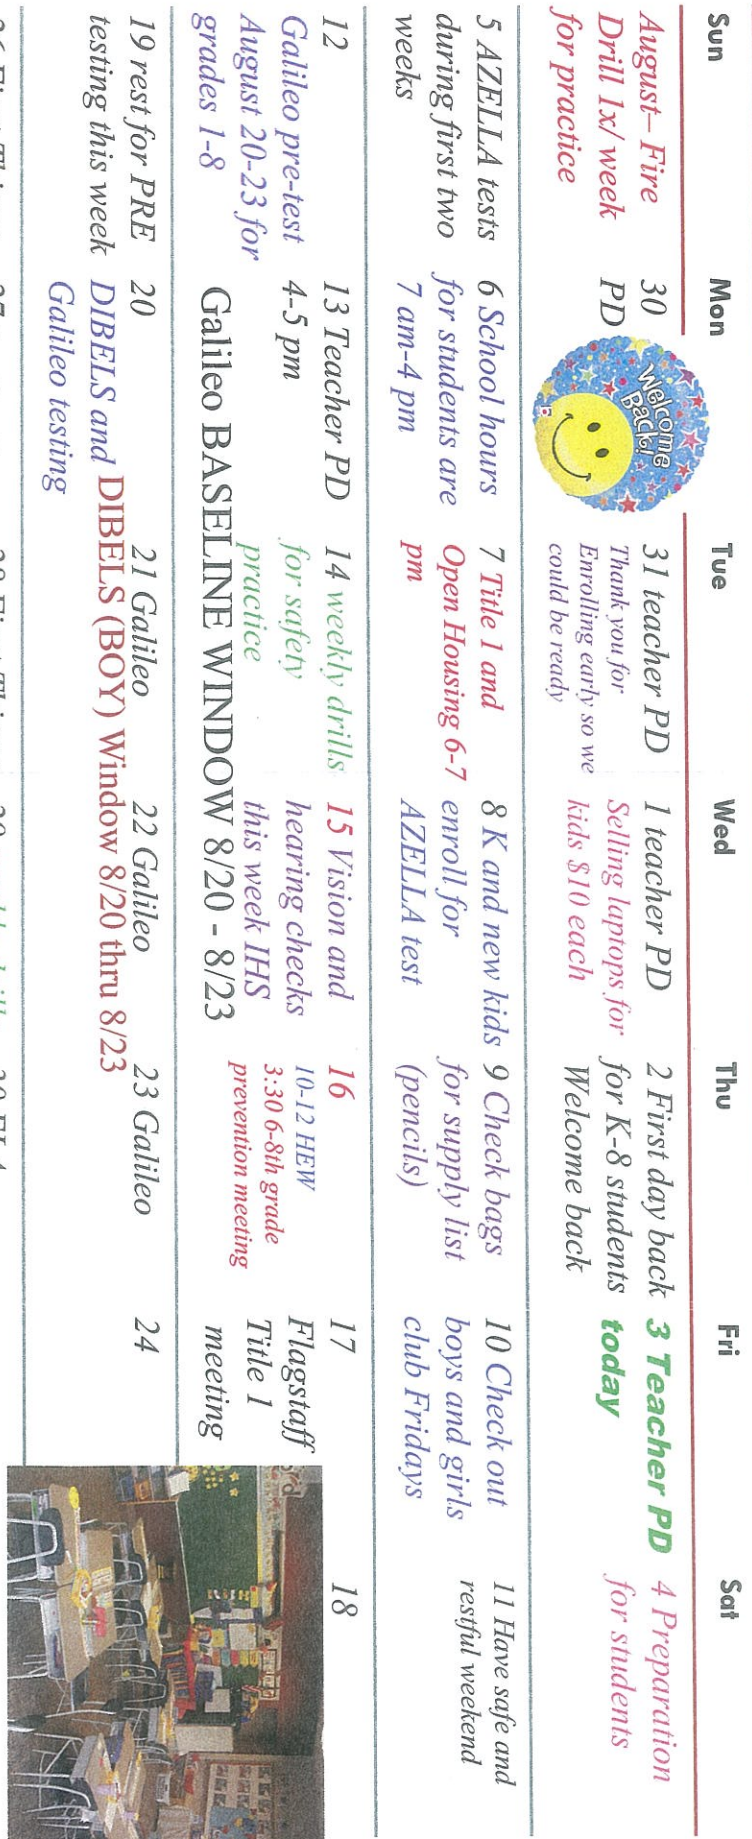 Sun Mon Tue Wed Thu Fri Sat
August– Fire
Drill 1x/ week
for practice
30
PD
Welcome
Back!
31 teacher PD
Thank you for
Enrolling early so we
could be ready
1 teacher PD
Selling laptops for
kids $10 each
2 First day back
for K-8 students
Welcome back
3 Teacher PD
today
4 Preparation
for students
5 AZELLA tests
during first two
weeks
6 School hours
for students are
7 am-4 pm
7 Title 1 and
Open Housing 6-7
pm
8 K and new kids
enroll for
AZELLA test
9 Check bags
for supply list
(pencils)
10 Check out
boys and girls
club Fridays
11 Have safe and
restful weekend
12
Galileo pre-test
August 20-23 for
grades 1-8
13 Teacher PD
4-5 pm
14 weekly drills
for safety
practice
15 Vision and
hearing checks
this week IHS
16
10-12 HEW
3:30 6-8th grade
prevention meeting
17
Flagstaff
Title 1
meeting
18
Galileo BASELINE WINDOW 8/20 - 8/23
19 rest for PRE
testing this week
20
DIBELS and
Galileo testing
21 Galileo
22 Galileo
23 Galileo
24
DIBELS (BOY) Window 8/20 thru 8/23